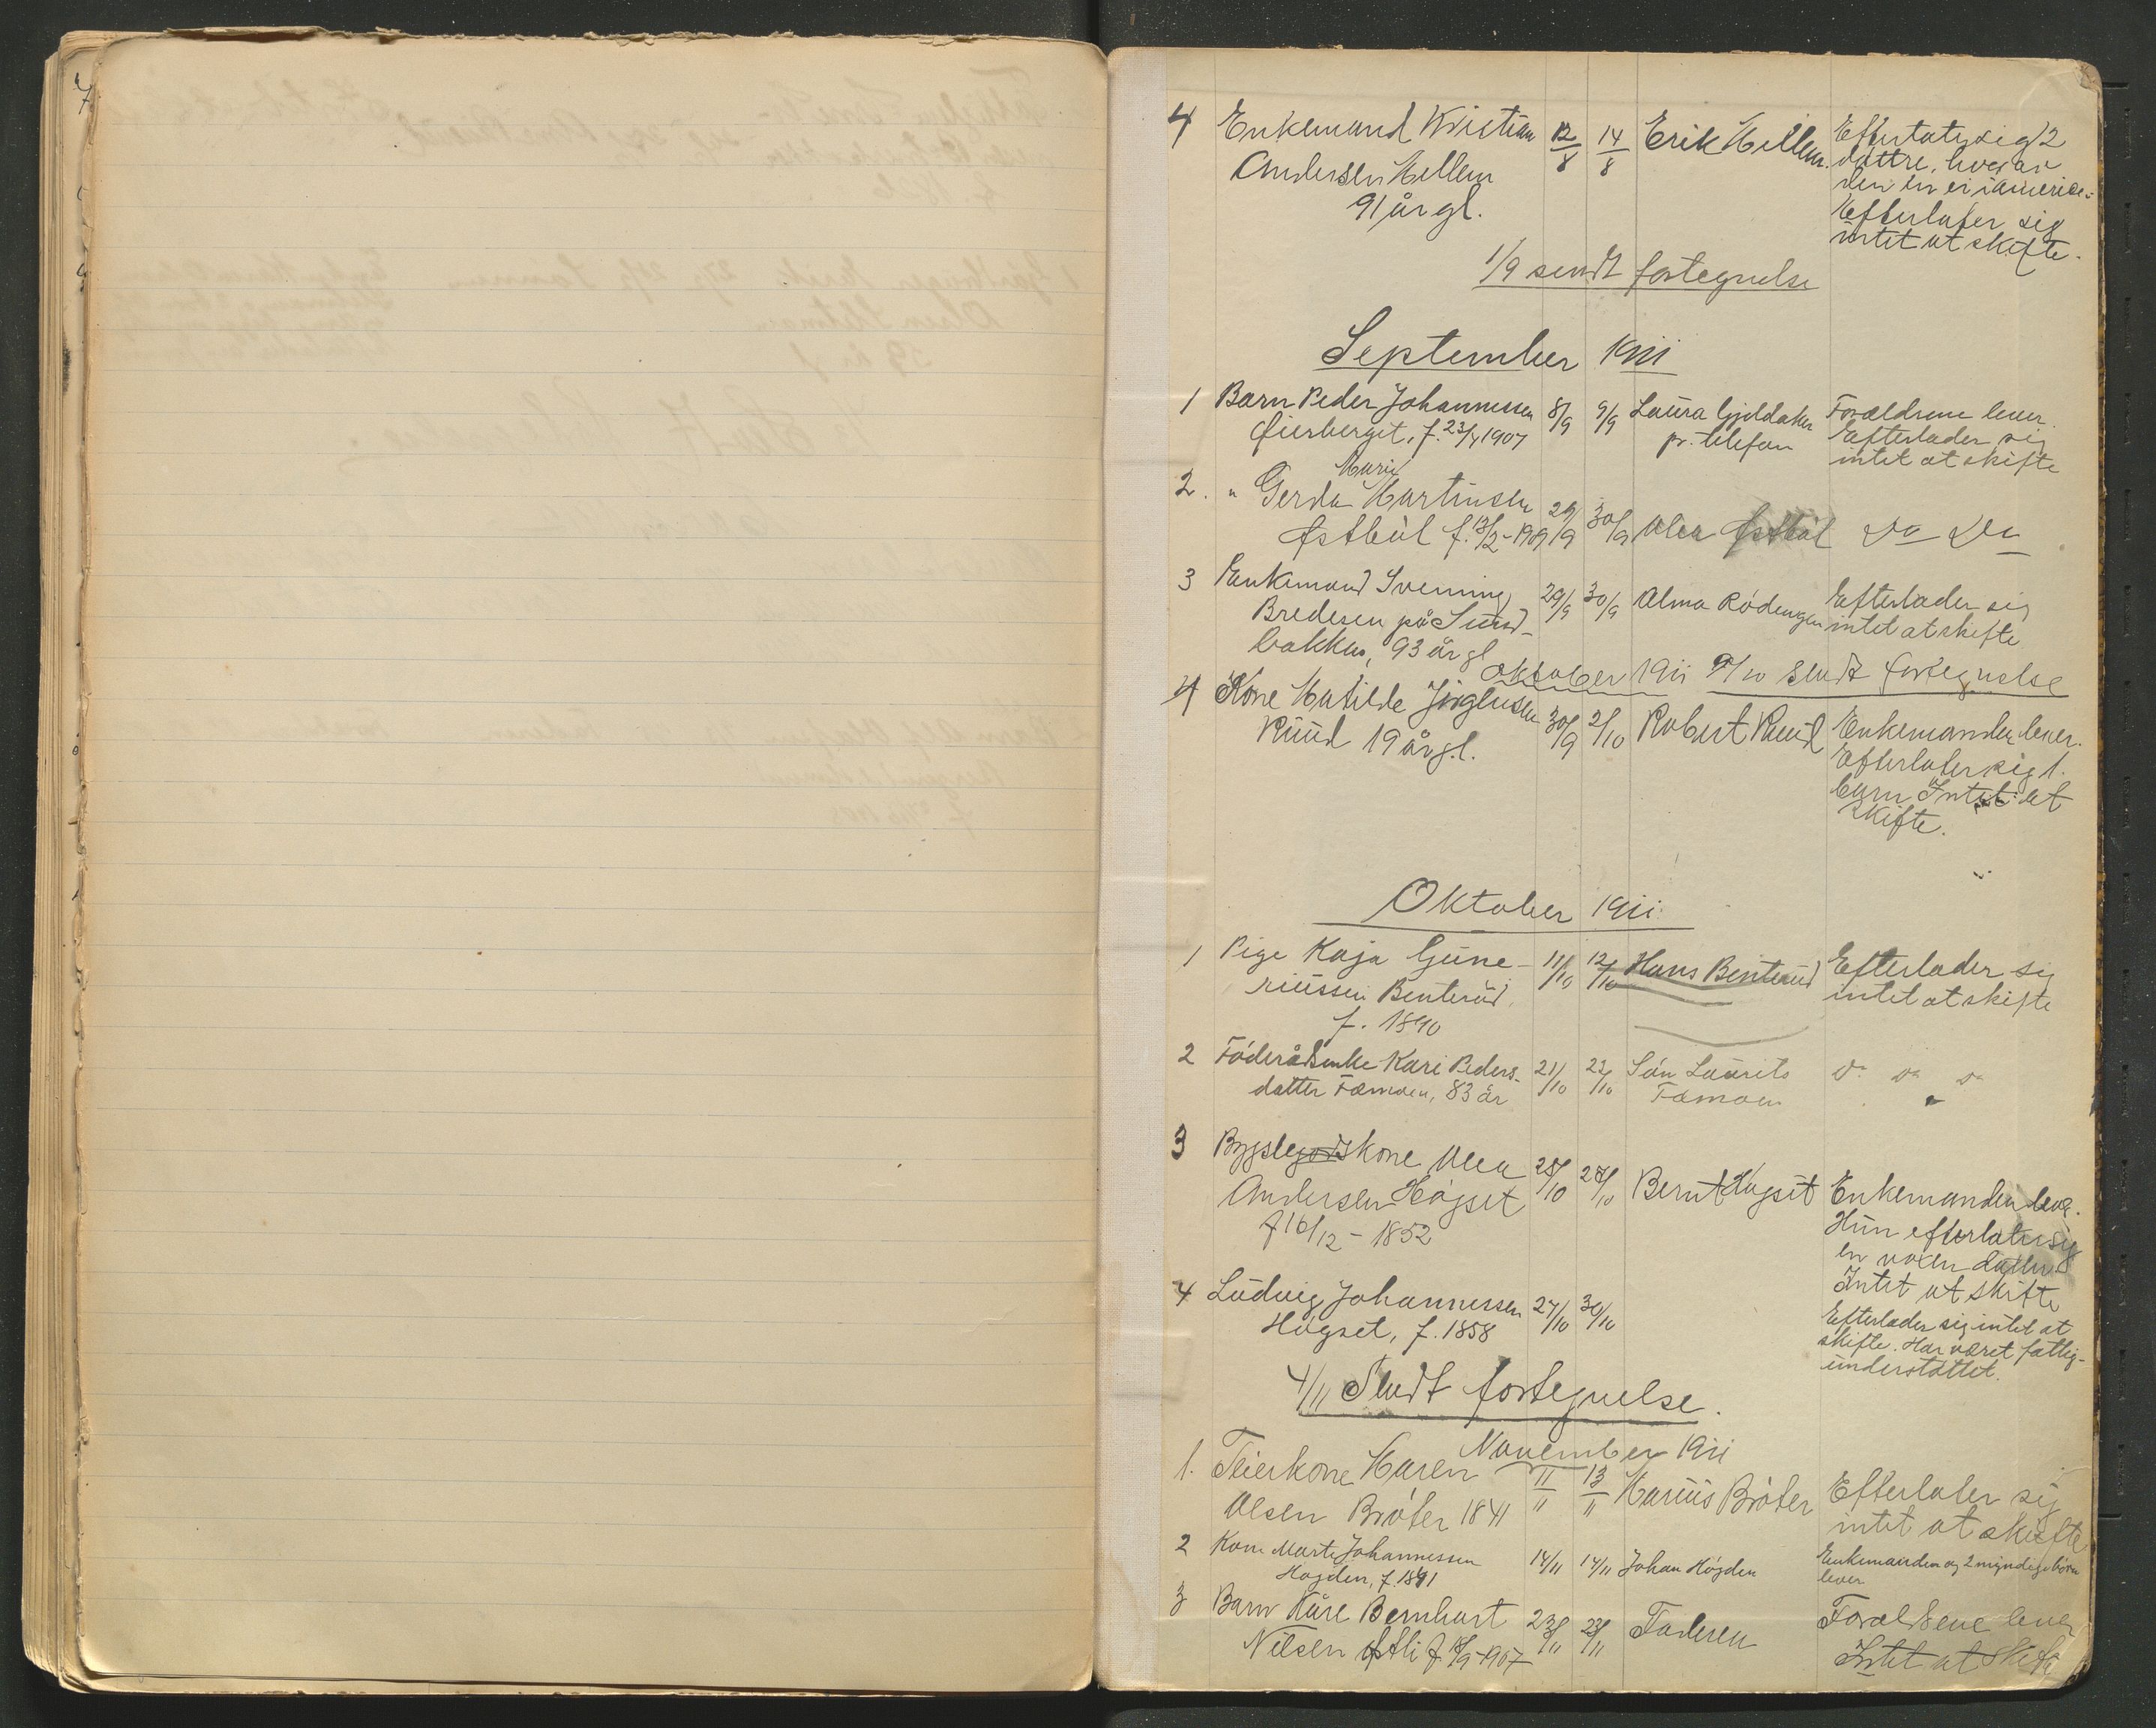 4 Enkemand Kristian 12/8 14/8 Erik Mellem. Efterlater sig 2
Andersen Mellem døttre, hvorav
91 år gl. den en er i America.
Efterlater sig
intet at skifte.
1/9 sendt fortegnelse
September 1911
1 Barn Peder Johannessen 8/9 9/9 Laura Gjeldaker Forældrene lever.
Øierberget, f. 23/4 1907 pr. telefon Efterlader sig
intet at skifte
Marie
2. " Gerda Martinsen 29/9 30/9 Olea Østbøl Do Do
Østbøl f. 13/2-1909
3 Enkemand Svenning 29/9 30/9 Alma Rödengen Efterlader sig
Bredesen på Sund- intet at skifte
bakken, 93 år gl
Oktober 1911 9/10 sendt fortegnelse
4 Kone Matilde Jörgensen 30/9 2/10 Robert Ruud Enkemanden lever.
Ruud 19 år gl. Efterlater sig 1.
barn Intet at
skifte.
Oktober 1911
1 Pige Kaja Gune- 11/10 12/10 Hans Benterud Efterlader sig
riussen Benterud, intet at skifte
f. 1890
2 Föderådsenke Kari Peders- 21/10 22/10 Sön Laurits Do Do Do
datter Fæmoen, 83 år Fæmoen
3 Bygslegodskone Olea 25/10 27/10 Bernt Högset Enkemanden lever.
Andersen Högset Hun efterlater sig
f 16/12 - 1852 en voksen datter
Intet at skifte
4 Ludvig Johannessen 27/10 30/10 Efterlader sig intet at
Högset, f. 1858 skifte. Har været fattig-
understøttet.
4/11 Sendt fortegnelse.
November 1911
1. Pleierkone Maren 11/11 13/11 Marius Bröter Efterlater sig
Olsen Bröter 1841 intet at skifte
2 Kone Marte Johannessen 14/11 14/11 Johan Högden Enkemanden og 2 myndige børn
Högden, f. 1841 lever
3 Barn Kåre Bernhart 23/11 23/11 Faderen Forældrene lever
Nilsen Østli f. 18/9-1907 Intet at skifte